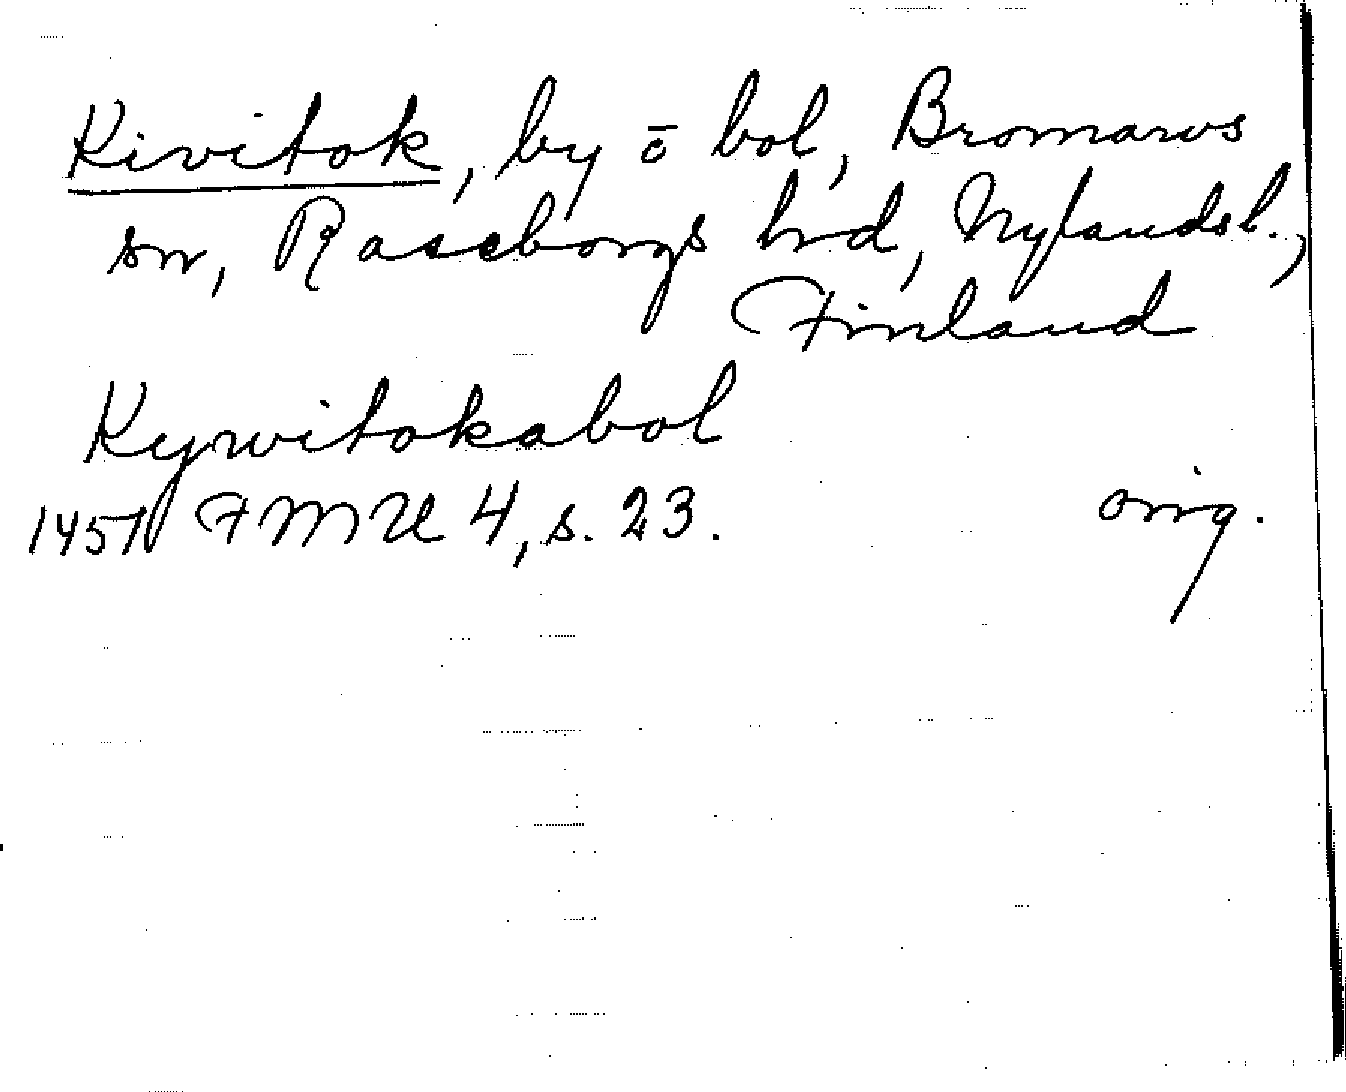 Kivitok, by o bol, Bromarvs
sn, Raseborgs hrd, Nylandsl.,
Finland
Kywitokabol
1457 FMU 4, s. 23. orig.